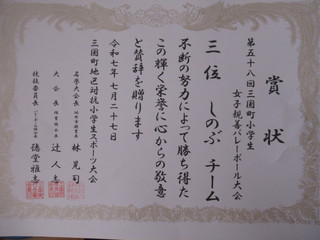 賞状
第五十八回三国町小学生
女子親善バレーボール大会
三位 しのぶ チーム
不断の努力によって勝ち得た
この輝く栄誉に心からの敬意
と賛辞を贈ります
令和七年七月二十七日
三国町地区対抗小学生スポーツ大会
名誉大会長 林 晃司
大会長 辻 人志
競技委員長 徳堂雅志